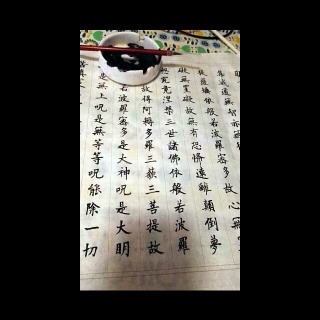 集滅道無智亦無
提薩埵依般若波羅蜜多故心無罣
礙無罣礙故無有恐怖遠離顛倒夢
究竟涅槃三世諸佛依般若波羅
故得阿耨多羅三藐三菩提故
若波羅蜜多是大神呪是大明
是無上呪是無等等呪能除一切